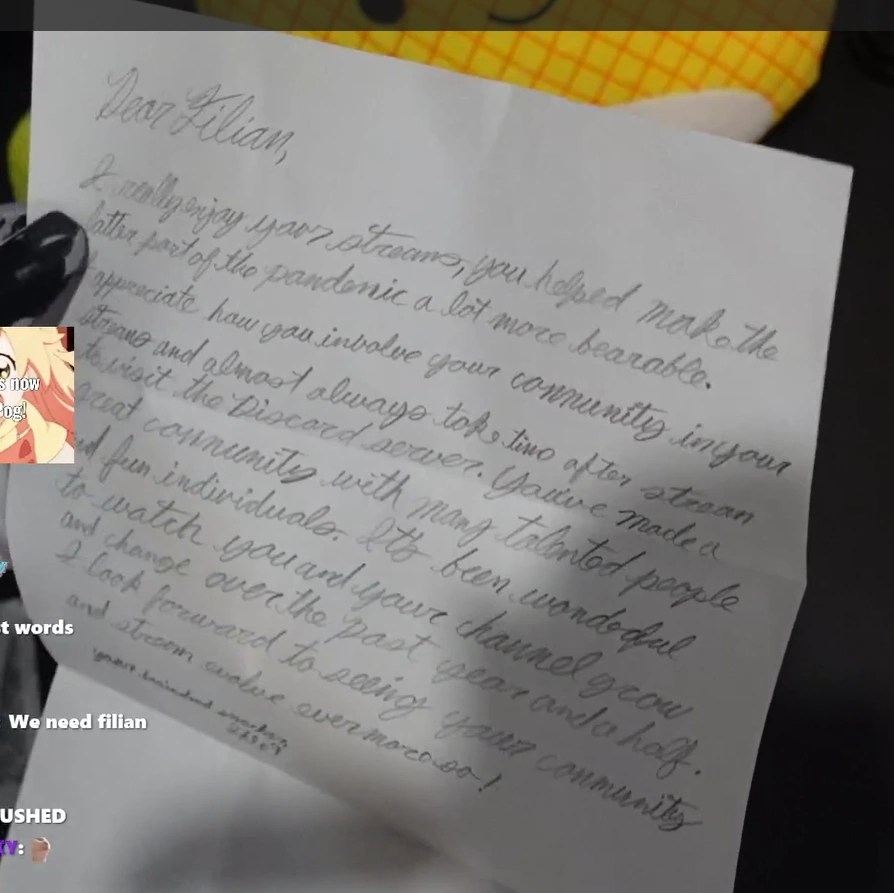 Dear Filian,
I really enjoy your streams, you helped make the
latter part of the pandemic a lot more bearable.
I appreciate how you involve your community in your
streams and almost always take time after stream
to visit the Discord server. You've made a
great community with many talented people
and fun individuals. It's been wonderful
to watch you and your channel grow
and change over the past year and a half.
I look forward to seeing your community
and stream evolve ever more
your
s now
Pog!
st words
We need filian
USHED
KY: